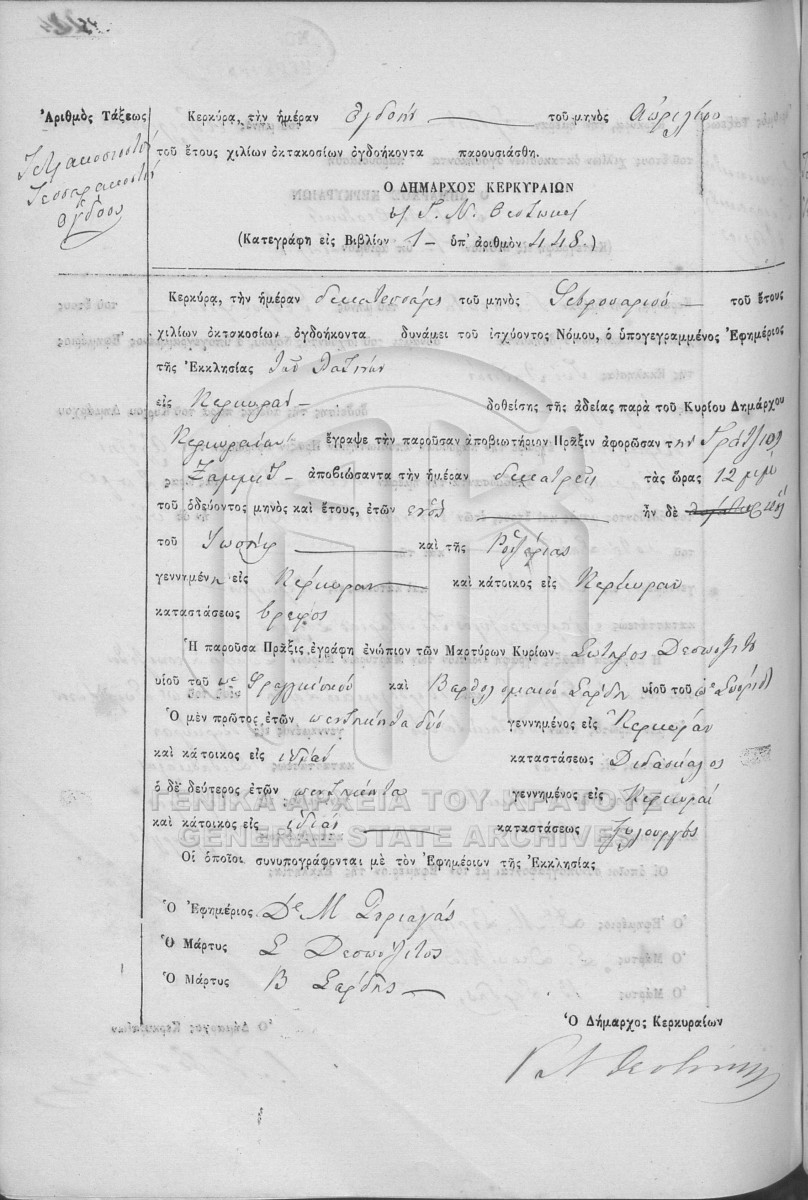 Ἀριθμὸς Τάξεως
Τετρακοσιοστὴ
Τεσσαρακοστὴ
ὄγδοος
Κερκύρα, τὴν ἡμέραν ὀγδόην τοῦ μηνὸς Ἀπριλίου
τοῦ ἔτους χιλίων ὀκτακοσίων ὀγδοήκοντα παρουσιάσθη.
Ὁ ΔΗΜΑΡΧΟΣ ΚΕΡΚΥΡΑΙΩΝ
Γ. Ν. Θεοτόκης
(Κατεγράφη εἰς Βιβλίον 1 — ὑπ' ἀριθμὸν 448.)
Κερκύρα, τὴν ἡμέραν δεκατέσσαρες τοῦ μηνὸς Φεβρουαρίου — τοῦ ἔτους
χιλίων ὀκτακοσίων ὀγδοήκοντα δυνάμει τοῦ ἰσχύοντος Νόμου, ὁ ὑπογεγραμμένος Ἐφημέριος
τῆς Ἐκκλησίας τῶν Λατίνων
εἰς Κέρκυραν — δοθείσης τῆς ἀδείας παρὰ τοῦ Κυρίου Δημάρχου
Κερκυραίων ἔγραψε τὴν παροῦσαν ἀποβιωτήριον Πρᾶξιν ἀφορῶσαν τὴν
Ζαμμιτ — ἀποβιώσαντα τὴν ἡμέραν δεκατρεῖς τὰς ὥρας 12 μμ
τοῦ ὁδεύοντος μηνὸς καὶ ἔτους, ἐτῶν ἑνὸς — ἦν δὲ
τοῦ Ἰωσὴφ — καὶ τῆς Ροζαρίας
γεννημένη εἰς Κέρκυραν — καὶ κάτοικος εἰς Κέρκυραν
καταστάσεως βρέφος
Ἡ παροῦσα Πρᾶξις ἐγράφη ἐνώπιον τῶν Μαρτύρων Κυρίων Σωτῆρος Δεσπόζιτο
υἱοῦ τοῦ Φραγκίσκου καὶ Βαρθολομαίου Σαρδη υἱοῦ τοῦ
Ὁ μὲν πρῶτος ἐτῶν πεντήκοντα δύο γεννημένος εἰς Κέρκυραν
καὶ κάτοικος εἰς ἰδίαν καταστάσεως Διδάσκαλος
ὁ δὲ δεύτερος ἐτῶν πεντήκοντα γεννημένος εἰς Κέρκυραν
καὶ κάτοικος εἰς ἰδίαν — καταστάσεως ξυλουργὸς
Οἱ ὁποῖοι συνυπογράφονται μὲ τὸν Ἐφημέριον τῆς Ἐκκλησίας
Ὁ Ἐφημέριος Dr Μ
Ὁ Μάρτυς Σ Δεσπόζιτος
Ὁ Μάρτυς Β Σαρδης —
Ὁ Δήμαρχος Κερκυραίων
ΓΕΝΙΚΑ ΑΡΧΕΙΑ ΤΟΥ ΚΡΑΤΟΥΣ
GENERAL STATE ARCHIVES